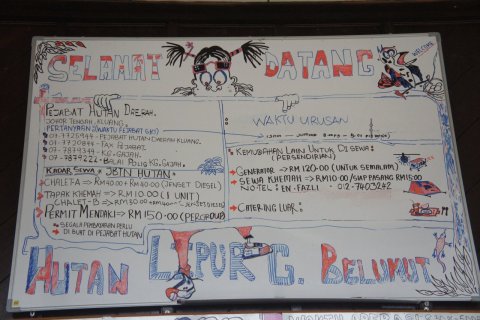 SELAMAT DATANG
WELCOME
PEJABAT HUTAN DAERAH.
JOHOR TENGAH, KLUANG.
PERTANYAAN (WAKTU PEJABAT SHJ)
07-7725944 - PEJABAT HUTAN DAERAH KLUANG.
- FAX PEJABAT.
- KG. GAJAH.
07-7879222 - BALAI POLIS KG. GAJAH.
KADAR SEWA JBTN HUTAN
CHALET-A → RM40.00 + RM40.00 (JENSET DIESEL)
TAPAK KHEMAH → RM10.00 (1 UNIT)
CHALET-B → RM30.00
PERMIT MENDAKI → RM150.00
SEGALA PEMBAYARAN PERLU
DI BUAT DI PEJABAT HUTAN
WAKTU URUSAN
KEMUDAHAN LAIN UNTUK DI SEWA:
(PERSENDIRIAN)
GENERATOR → RM120.00 (UNTUK SEMALAM)
SEWA KHEMAH → RM10.00 / SIAP PASANG RM15.00
NO-TEL: EN. FAZLI 012-7403242
CATERING LUAR:
HUTAN LIPUR G. BELUMUT